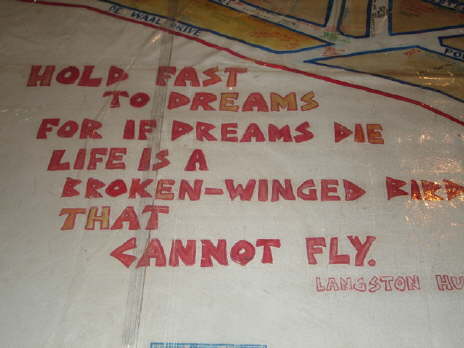 DE WAAL DRIVE
HOLD FAST
TO DREAMS
FOR IF DREAMS DIE
LIFE IS A
BROKEN-WINGED BIRD
THAT
CANNOT FLY.
LANGSTON HU